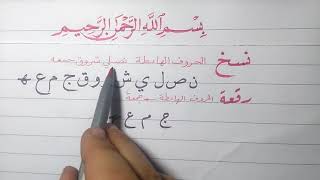 بِسْمِ اللَّهِ الرَّحْمَنِ الرَّحِيمِ
نسخ الحروف الهابطة
ن ص ل ي ش و ق ج م ع ه
رقعة الحروف الهابطة
ج م ع